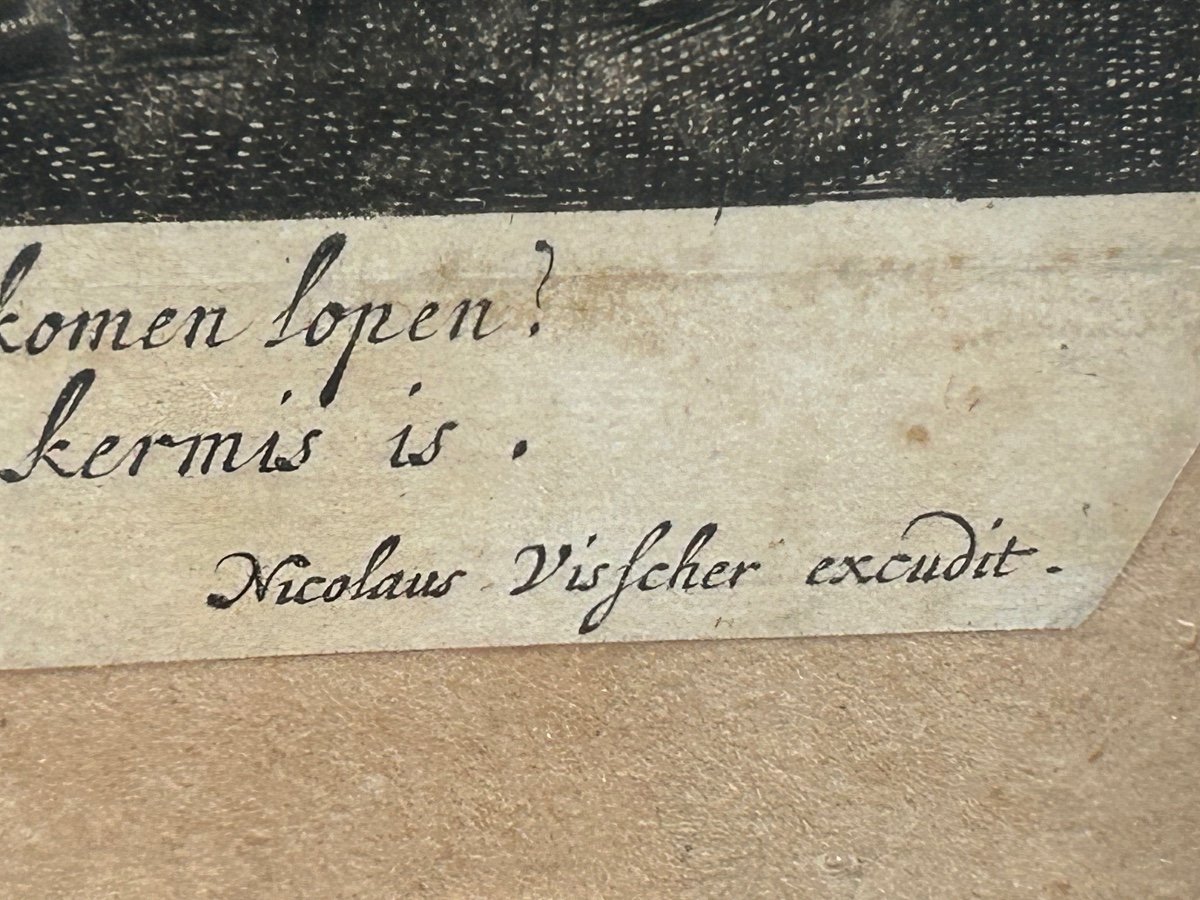 komen lopen?
kermis is .
Nicolaus Visscher excudit .